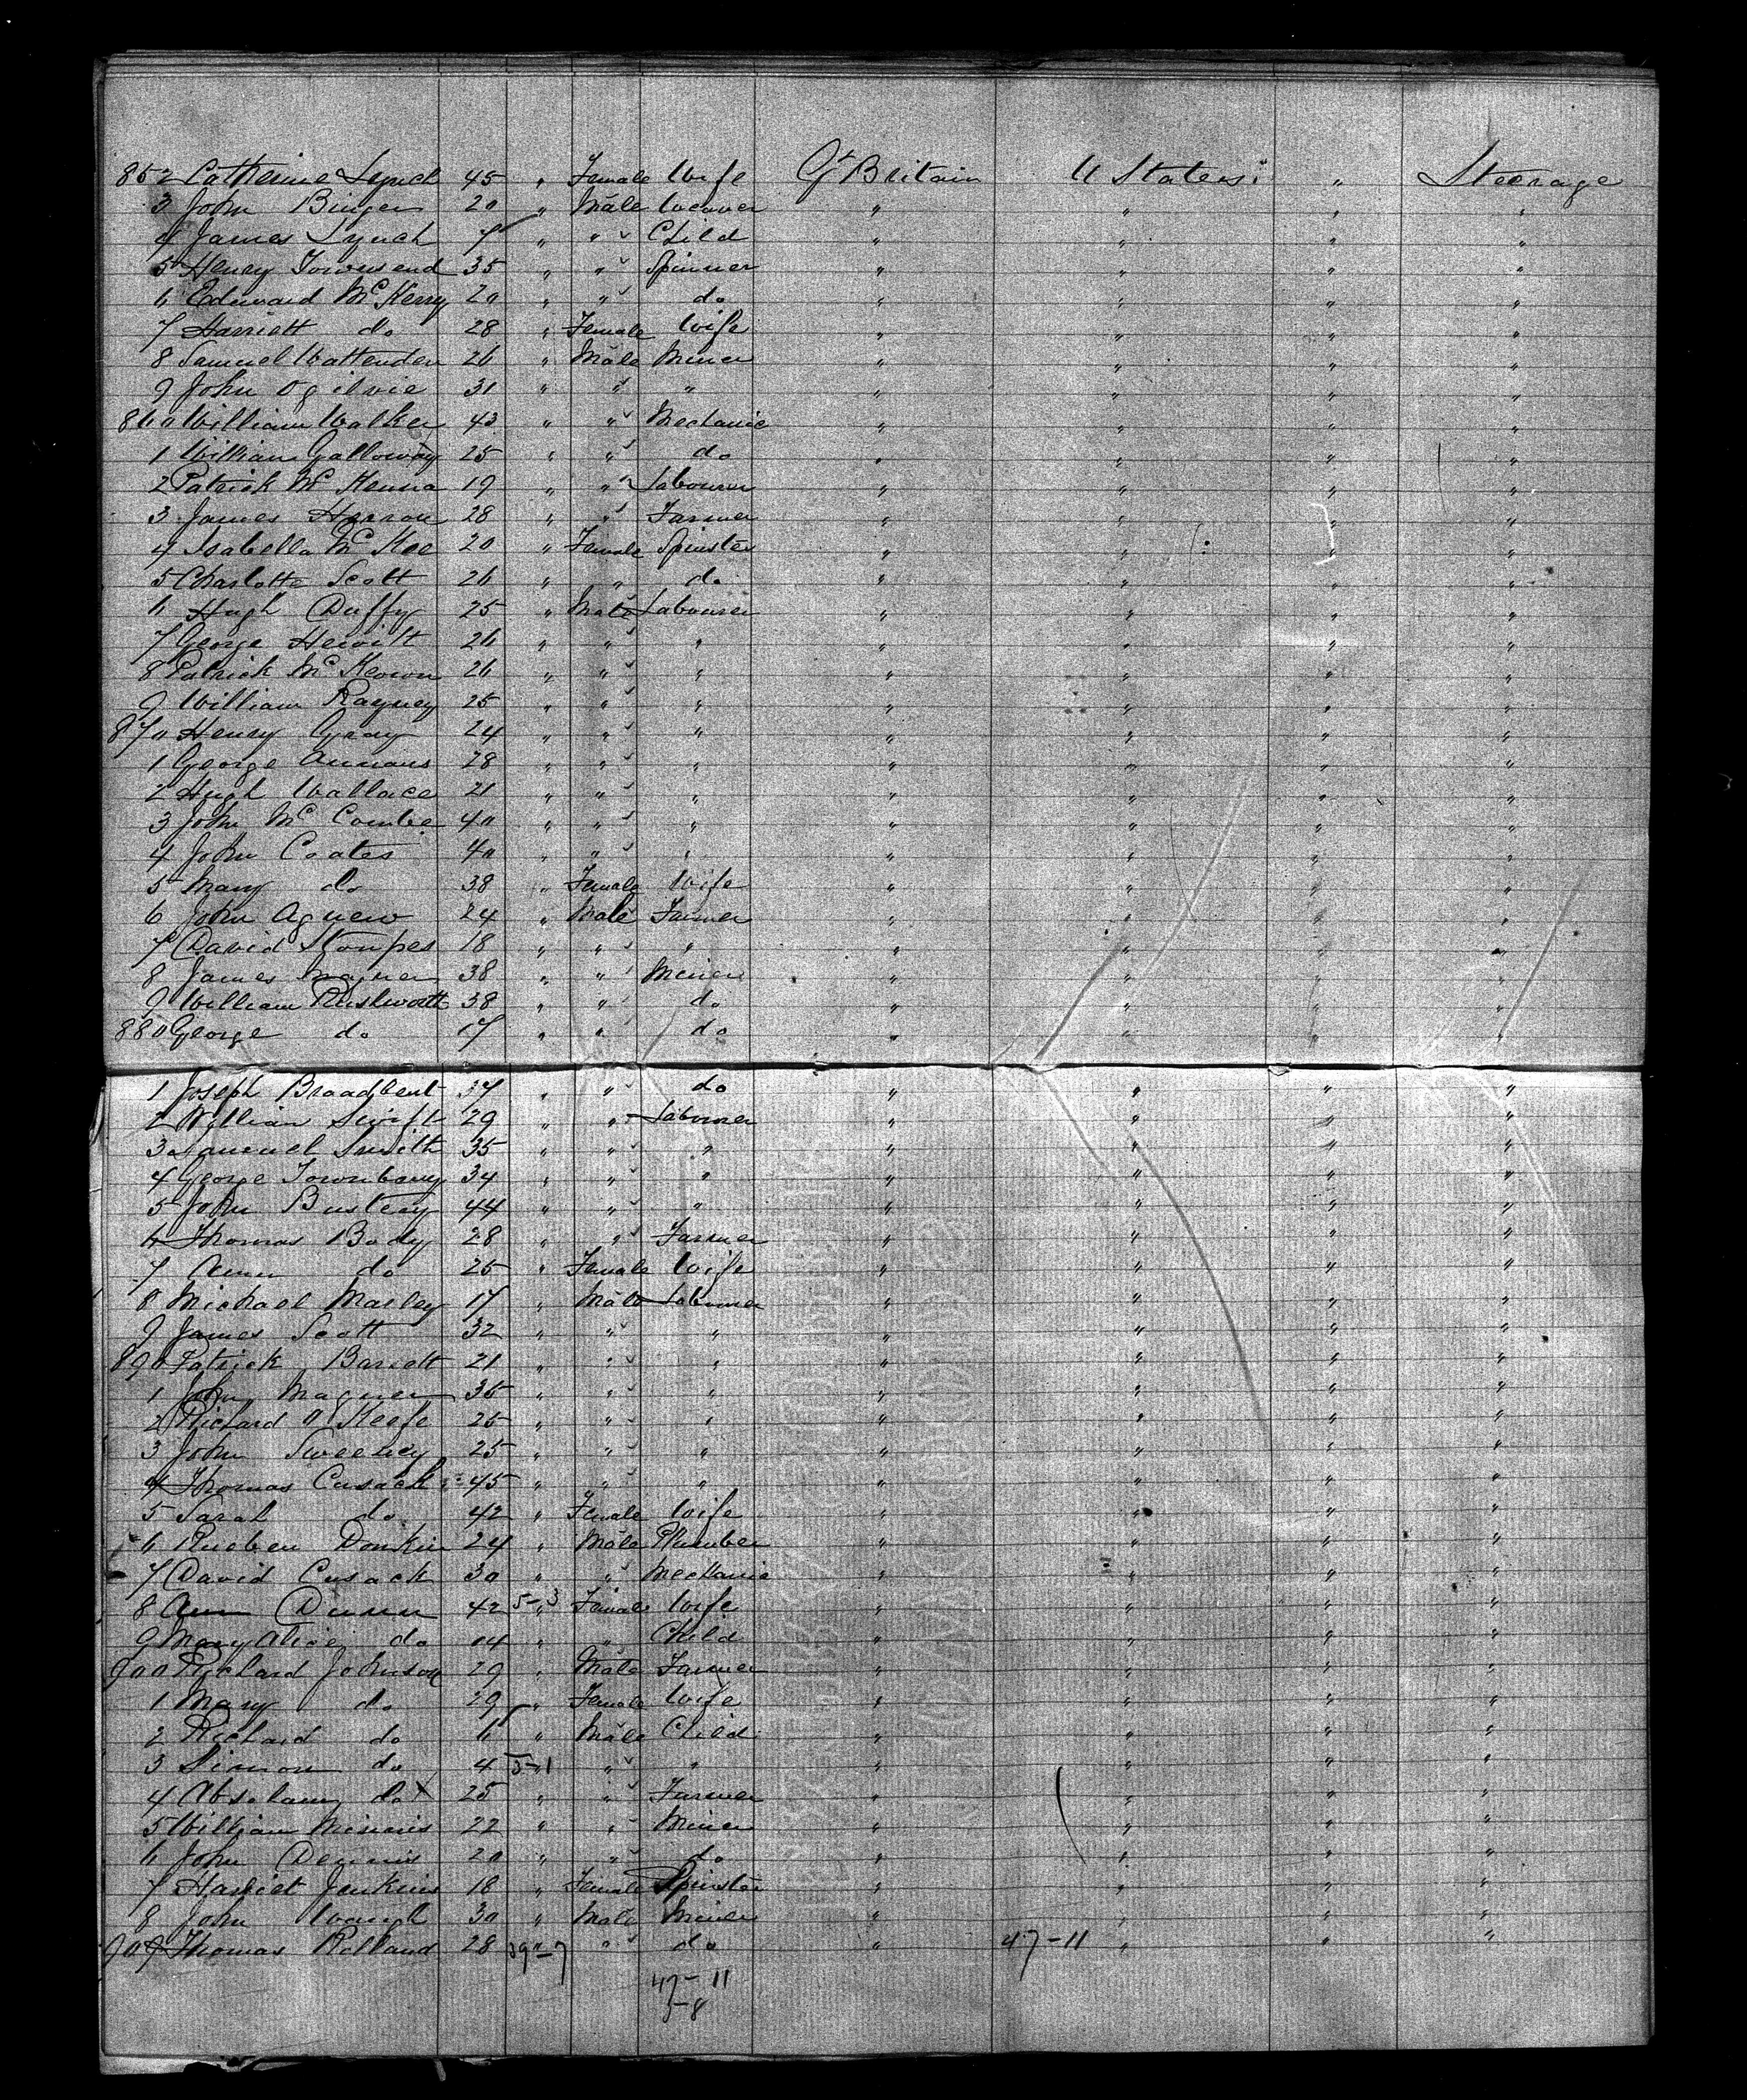 852 Catherine Lynch 45 " Female Wife Gt Britain U States " Steerage
3 John Binger 20 " Male Weaver " " " "
4 James Lynch 7 " " Child " " " "
5 Henry Townsend 35 " " Spinner " " " "
6 Edward McKerry 20 " " do " " " "
7 Harriett do 28 " Female Wife " " " "
8 Samuel Wattenden 26 " Male Miner " " " "
9 John Ogilvie 31 " " " " " " "
860 William Walker 43 " " Mechanic " " " "
1 William Galloway 25 " " do " " " "
2 Patrick McKenna 19 " " Labourer " " " "
3 James Herron 28 " " Farmer " " " "
4 Isabella McKee 20 " Female Spinster " " " "
5 Charlotte Scott 26 " " do " " " "
6 Hugh Duffy 25 " Male Labourer " " " "
7 George Hewitt 26 " " " " " " "
8 Patrick McKeown 26 " " " " " " "
9 William Rayney 25 " " " " " " "
870 Henry Gray 24 " " " " " " "
1 George Annans 28 " " " " " " "
2 Hugh Wallace 21 " " " " " " "
3 John McCombe 40 " " " " " " "
4 John Coates 40 " " " " " " "
5 Mary do 38 " Female Wife " " " "
6 John Agnew 24 " Male Farmer " " " "
7 David Stoupes 18 " " " " " " "
8 James Magner 38 " " Miner " " " "
9 William Rushworth 38 " " do " " " "
880 George do 17 " " do " " " "
1 Joseph Broadbent 37 " " do " " " "
2 William Swift 29 " " Labourer " " " "
3 Samuel Smith 35 " " " " " " "
4 George Townbany 34 " " " " " " "
5 John Busteay 44 " " " " " " "
6 Thomas Body 28 " " Farmer " " " "
7 Ann do 25 " Female Wife " " " "
8 Michael Marley 17 " Male Labourer " " " "
9 James Scott 32 " " " " " " "
890 Patrick Barrett 21 " " " " " " "
1 John Magner 35 " " " " " " "
2 Richard O Keefe 25 " " " " " " "
3 John Sweeney 25 " " " " " " "
4 Thomas Cusack 45 " " " " " " "
5 Sarah do 42 " Female Wife " " " "
6 Rueben Donkin 24 " Male Plumber " " " "
7 David Cusack 30 " " Mechanic " " " "
8 Ann Dunn 42 5-3 " Female Wife " " " "
9 Mary Alice do 14 " " Child " " " "
900 Richard Johnson 29 " Male Farmer " " " "
1 Mary do 29 " Female Wife " " " "
2 Richard do 6 " Male Child " " " "
3 Simon do 4 5-1 " " " " " "
4 Absolam do 25 " " Farmer " " " "
5 William 22 " " Miner " " " "
6 John Dennis 20 " " do " " " "
7 Harriet Jenkins 18 " Female Spinster " " " "
8 John Waugh 30 " Male Miner " " " "
909 Thomas Rolland 28 39-7 " do " 47-11 " " "
47-11
5-8